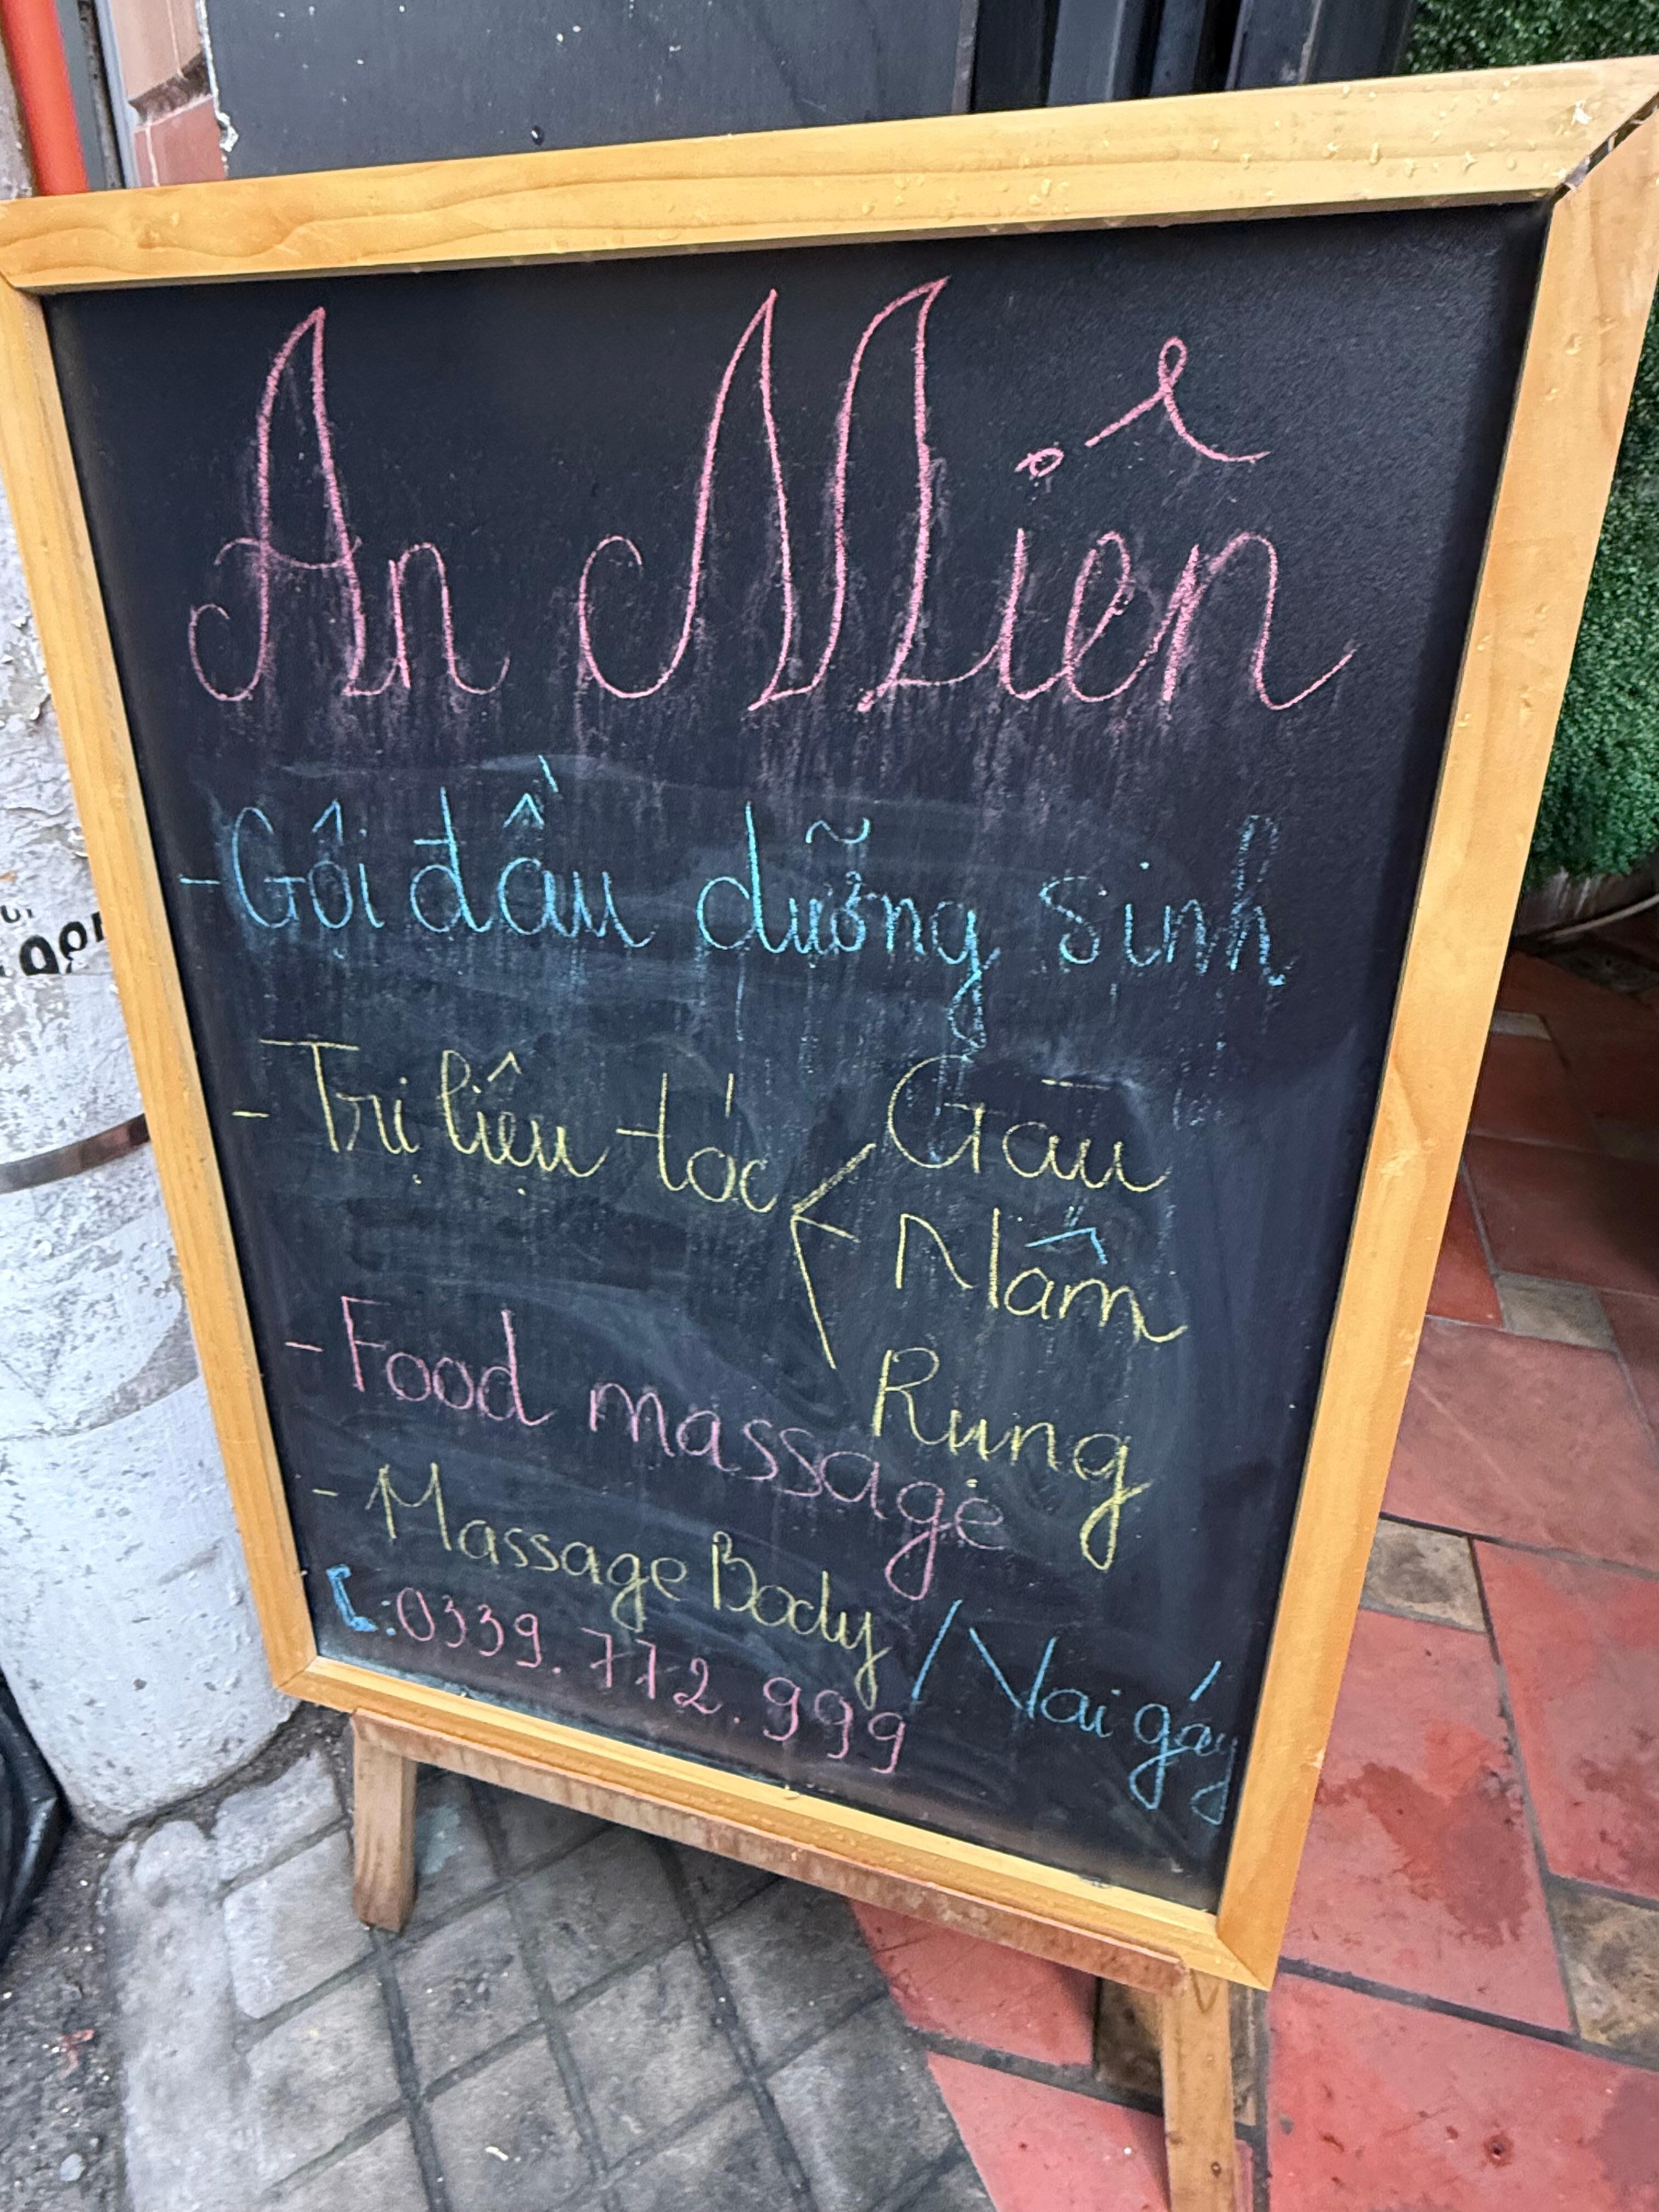 An Miên
- Gội đầu dưỡng sinh
- Trị liệu tóc < Gàu
Nấm
Rụng
- Food massage
- Massage Body / Vai gáy
: 0339.772.999